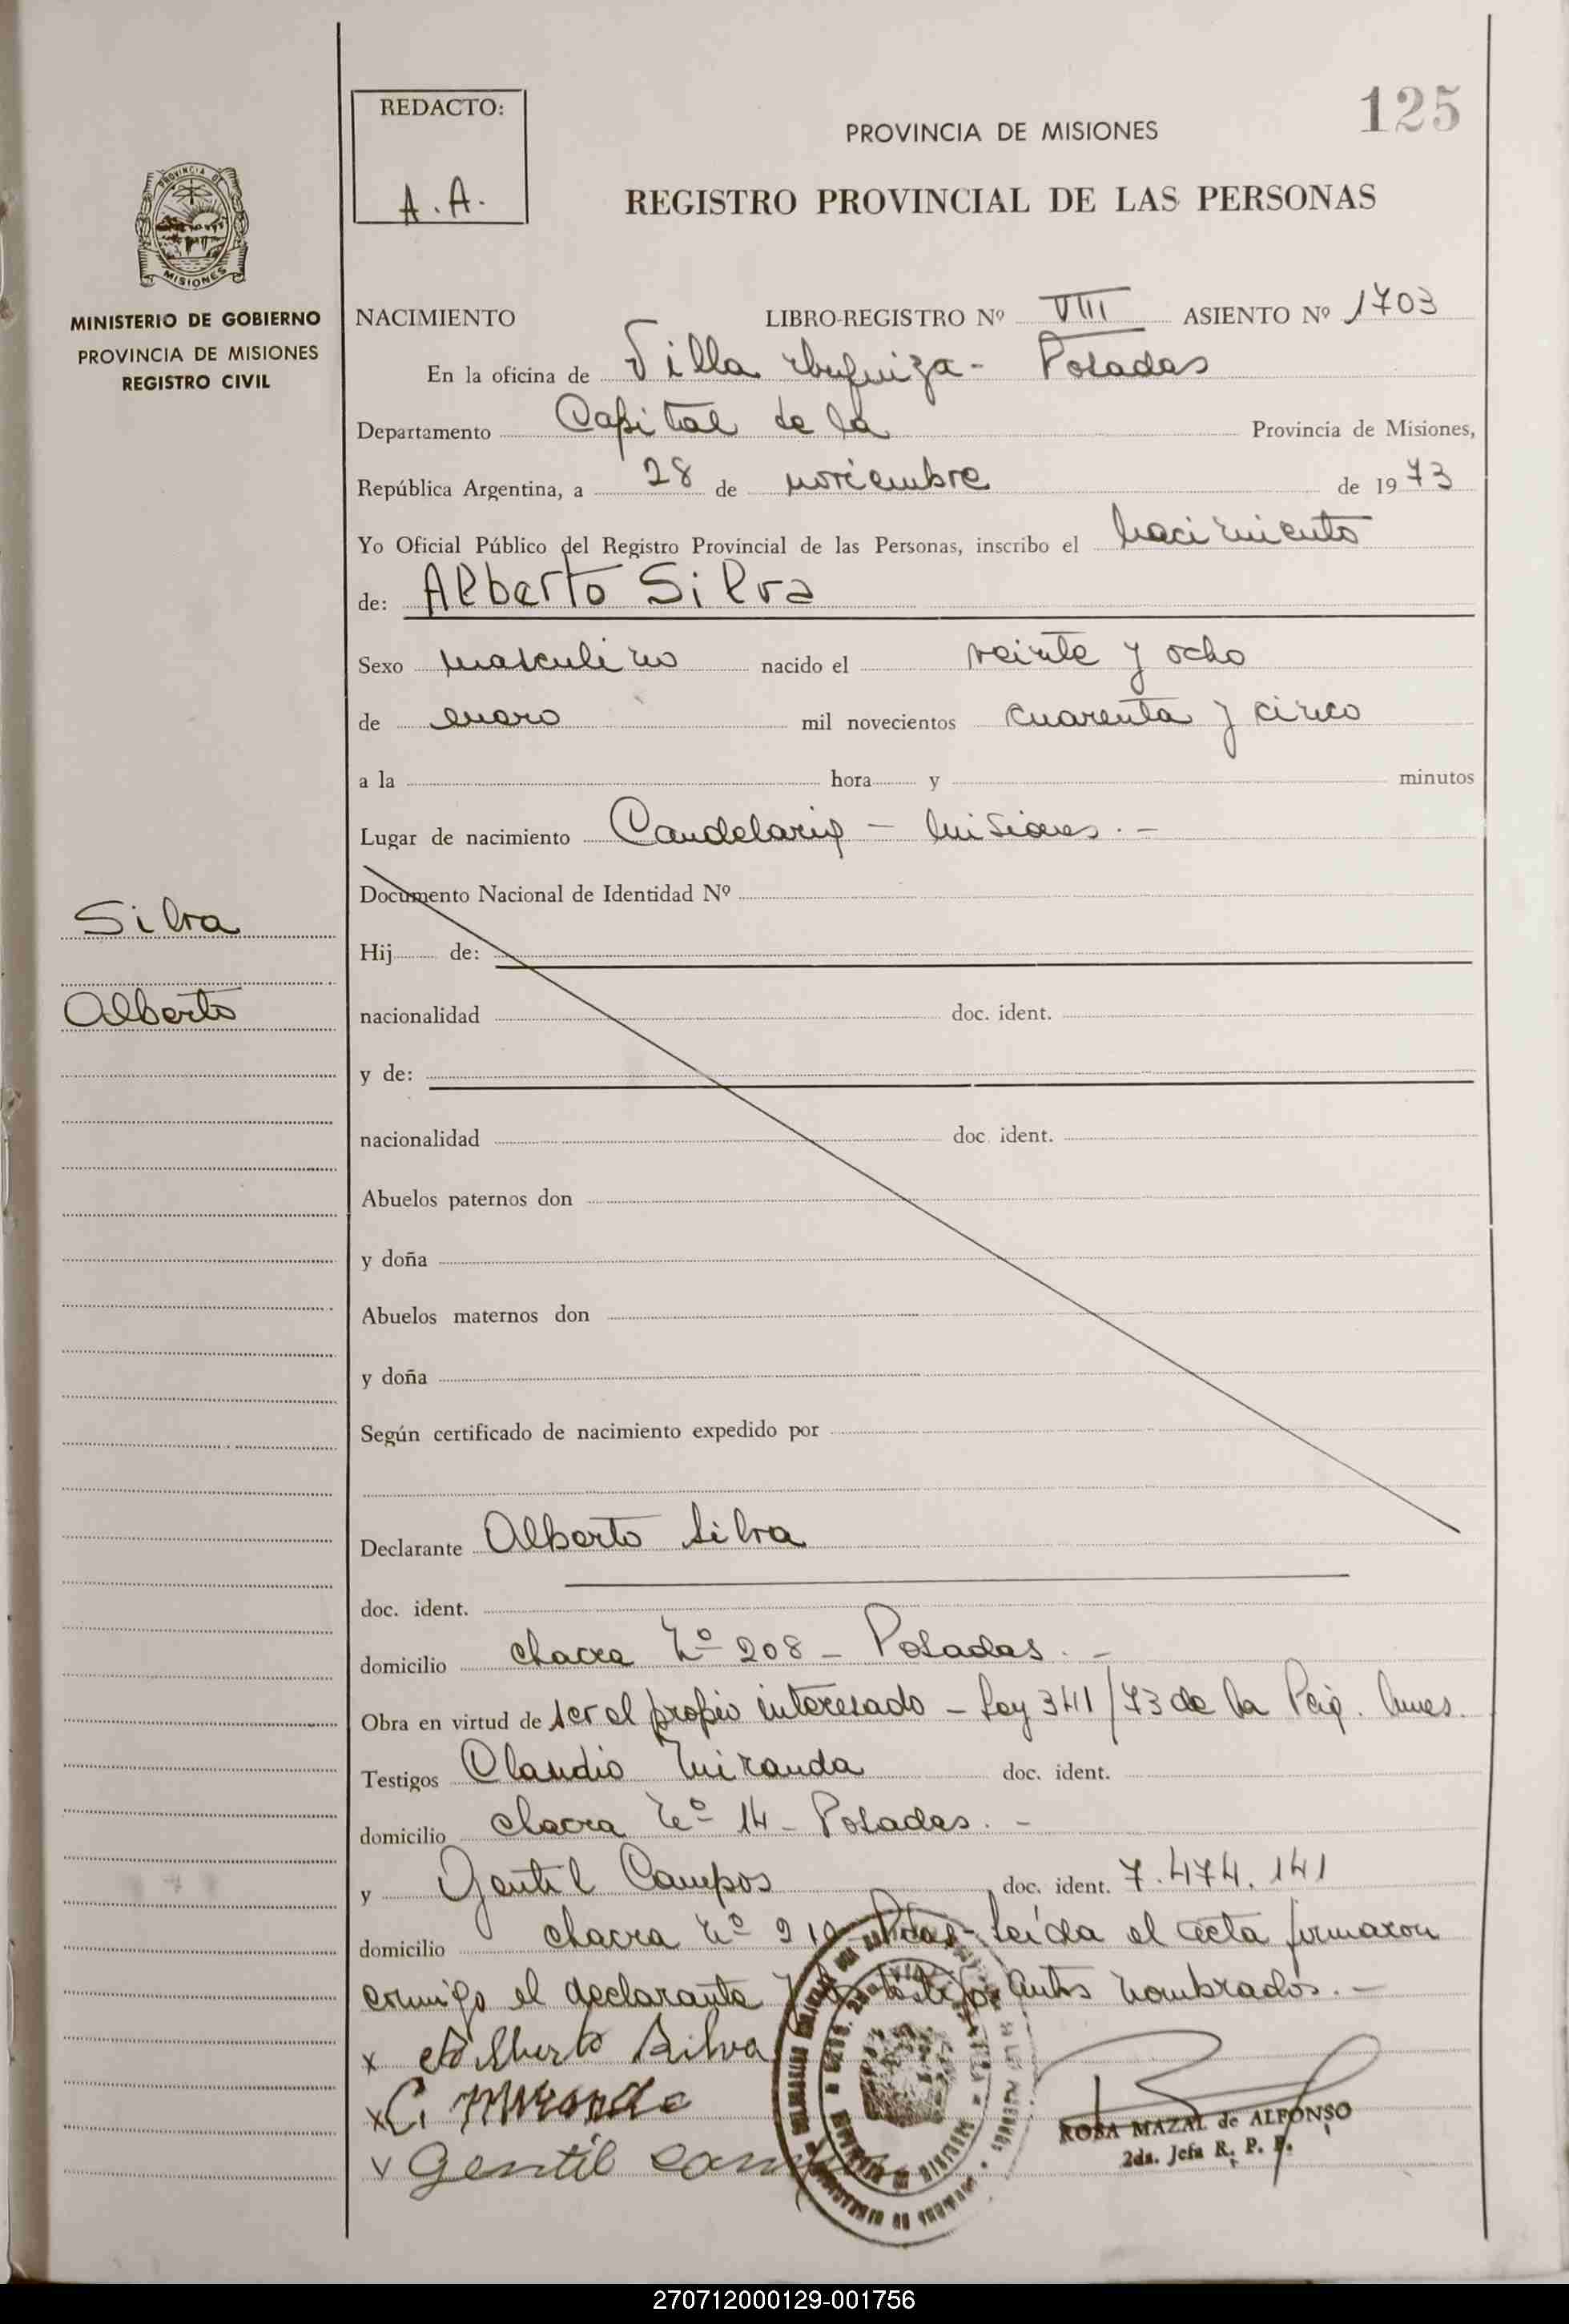 125
REDACTO:
A. A.
PROVINCIA DE MISIONES
REGISTRO PROVINCIAL DE LAS PERSONAS
PROVINCIA DE
MISIONES
MINISTERIO DE GOBIERNO
PROVINCIA DE MISIONES
REGISTRO CIVIL
NACIMIENTO LIBRO-REGISTRO Nº VIII ASIENTO Nº 1703
En la oficina de Villa Posadas
Departamento Capital de la Provincia de Misiones,
República Argentina, a 28 de noviembre de 1973
Yo Oficial Público del Registro Provincial de las Personas, inscribo el nacimiento
de: Alberto Silva
Sexo masculino nacido el veinte y ocho
de enero mil novecientos cuarenta y cinco
a la hora y minutos
Lugar de nacimiento Candelaria - Misiones. -
Documento Nacional de Identidad Nº
Silva
Hij de:
Alberto
nacionalidad doc. ident.
y de:
nacionalidad doc. ident.
Abuelos paternos don
y doña
Abuelos maternos don
y doña
Según certificado de nacimiento expedido por
Declarante Alberto Silva
doc. ident.
domicilio chacra Nº 208 - Posadas. -
Obra en virtud de ser el propio interesado - Ley 341/73 de la
Testigos Claudio Miranda doc. ident.
domicilio chacra Nº 14 - Posadas. -
y Gentil Campos doc. ident. 7.474.141
domicilio chacra Nº Pdas - Leída el acta firmaron
conmigo el declarante y los testigos antes nombrados. -
x Alberto Silva
x C. Miranda
v Gentil
ROSA MAZAL de ALFONSO
2da. Jefa R. P. P.
270712000129-001756